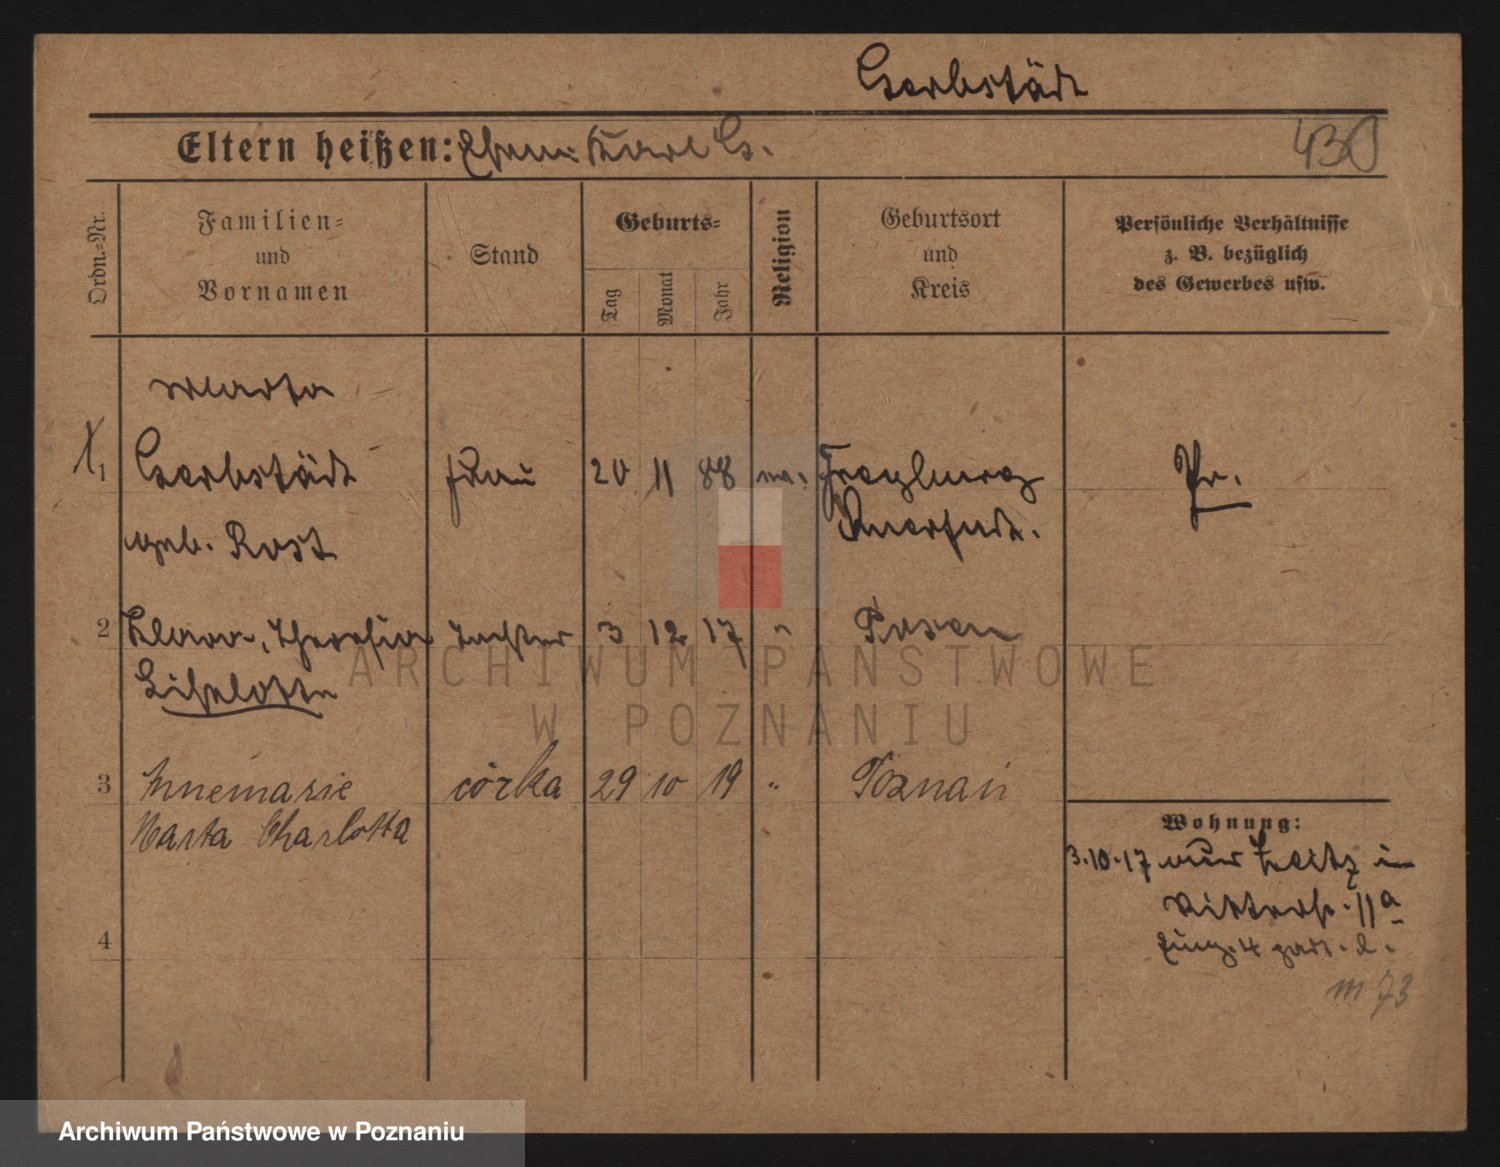 Gerbstädt
Eltern heißen: Ehem: Karl G.
430
Ordn.-Nr.
Familien- und Vornamen
Stand
Geburts-
Tag
Monat
Jahr
Religion
Geburtsort und Kreis
Persönliche Verhältnisse
z. B. bezüglich
des Gewerbes usw.
Marta
1 Gerbstädt Frau 20 11 88 Freyburg Pr.
geb. Rost Querfurt.
2 Klara, Theresia Tochter 3 12 17 " Posen
Liselotte
3 Annemarie córka 29 10 19 " Poznań
Marta Charlotta
Wohnung:
3.10.17 von Zeitz in
Viktorstr. 11a
Eing. 4 part. l.
4
m 73
ARCHIWUM PAŃSTWOWE
W POZNANIU
Archiwum Państwowe w Poznaniu